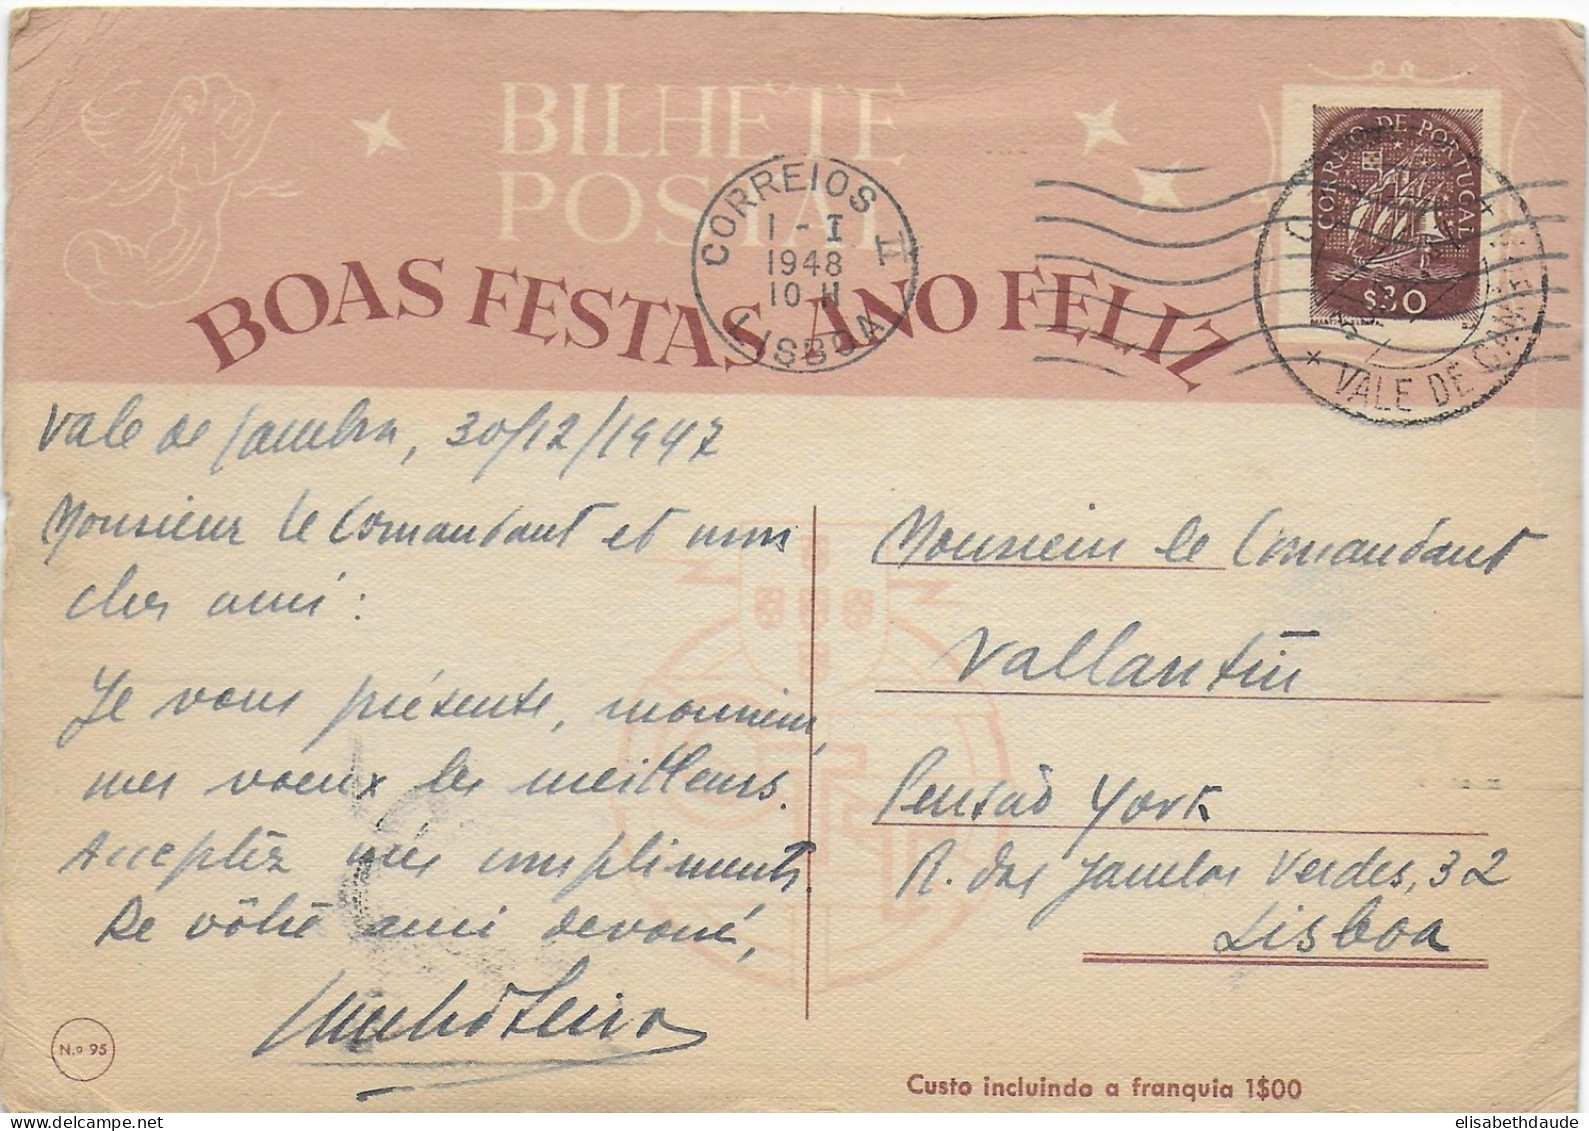 BILHETE
POSTAL
BOAS FESTAS ANO FELIZ
CORREIOS II
1 - I
1948
10 H
LISBOA
CORREIO DE PORTUGAL
$30
VALE DE CAMBRA
Vale de Cambra, 30/12/1947
Monsieur le Comandant et mon
cher ami:
Je vous présente, monsieur,
mes voeux les meilleurs.
Acceptez mes compliments.
De vôtre ami devoué,
Monsieur le Comandant
Vallantin
Pensão York
R. das Janelas Verdes, 32
Lisboa
N.o 95
Custo incluindo a franquia 1$00
elisabethdaude